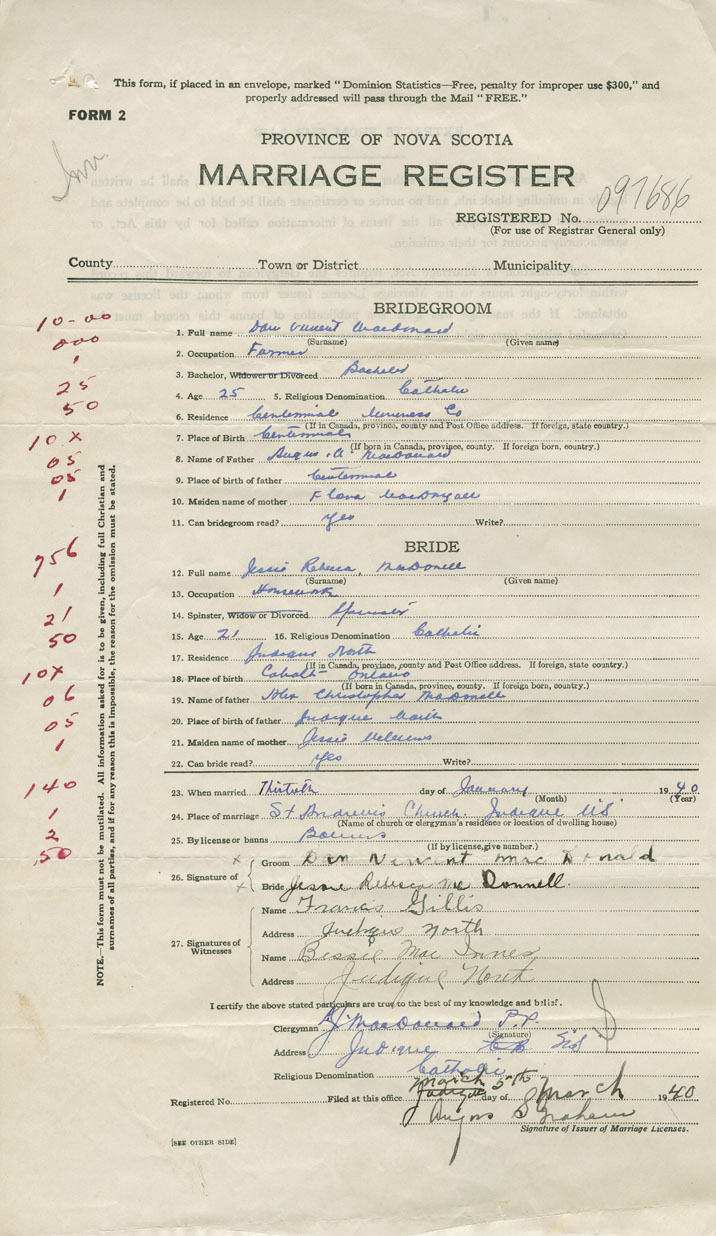 This form, if placed in an envelope, marked "Dominion Statistics—Free, penalty for improper use $300," and
properly addressed will pass through the Mail "FREE."
FORM 2
PROVINCE OF NOVA SCOTIA
Inv.
MARRIAGE REGISTER
REGISTERED No. 097686
(For use of Registrar General only)
County Town or District Municipality
BRIDEGROOM
10-00
1. Full name Dan Vincent MacDonald
(Surname) (Given name)
000
2. Occupation Farmer
1
3. Bachelor, Widower or Divorced Bachelor
25
4. Age 25 5. Religious Denomination Catholic
50
6. Residence Centennial Inverness Co
(If in Canada, province, county and Post Office address. If foreign, state country.)
10 X
7. Place of Birth Centennial
(If born in Canada, province, county. If foreign born, country.)
05
8. Name of Father Angus A MacDonald
05
9. Place of birth of father Centennial
1
10. Maiden name of mother Flora MacDougall
11. Can bridegroom read? Yes Write?
BRIDE
756
12. Full name Jessie Rebecca MacDonell
(Surname) (Given name)
1
13. Occupation Housework
21
14. Spinster, Widow or Divorced Spinster
50
15. Age 21 16. Religious Denomination Catholic
17. Residence Judique North
(If in Canada, province, county and Post Office address. If foreign, state country.)
10X
18. Place of birth Cobalt Ontario
(If born in Canada, province, county. If foreign born, country.)
06
19. Name of father Alex Christopher MacDonell
05
20. Place of birth of father Judique North
1
21. Maiden name of mother Jessie
22. Can bride read? Yes Write?
140
23. When married Thirtieth day of January 1940
(Month) (Year)
1
24. Place of marriage St Andrew's Church. Judique N.S.
(Name of church or clergyman's residence or location of dwelling house)
2
25. By license or banns Banns
(If by license, give number.)
50
26. Signature of
x Groom Dan Vincent Mac Donald
x Bride Jessie Rebecca Mc Donnell.
27. Signatures of Witnesses
Name Francis Gillis
Address Judique North
Name Bessie Mac Innes
Address Judique North
I certify the above stated particulars are true to the best of my knowledge and belief.
Clergyman MacDonald P.P.
(Signature)
Address Judique CB NS
Religious Denomination Catholic
March 5th
Registered No. Filed at this office Judique day of March 1940
Angus S Graham
Signature of Issuer of Marriage Licenses.
[SEE OTHER SIDE]
NOTE.—This form must not be mutilated. All information asked for is to be given, including full Christian and
surnames of all parties, and if for any reason this is impossible, the reason for the omission must be stated.